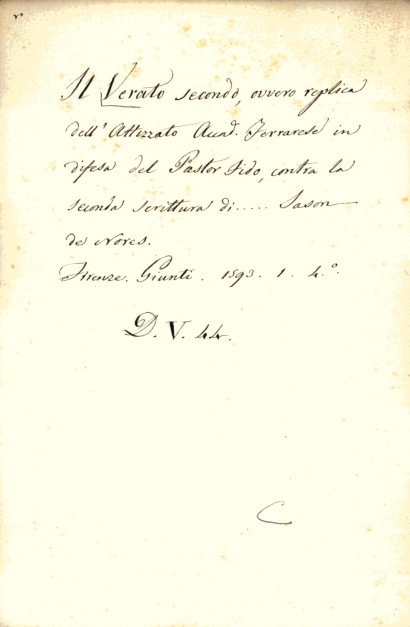 Il Verato secondo, ovvero replica
dell' Attizzato Accad. Ferrarese in
difesa del Pastor Fido, contra la
seconda scrittura di..... Jason
de Nores.
Firenze. Giunti. 1593. 1. 4.°.
D. V. 44.
C